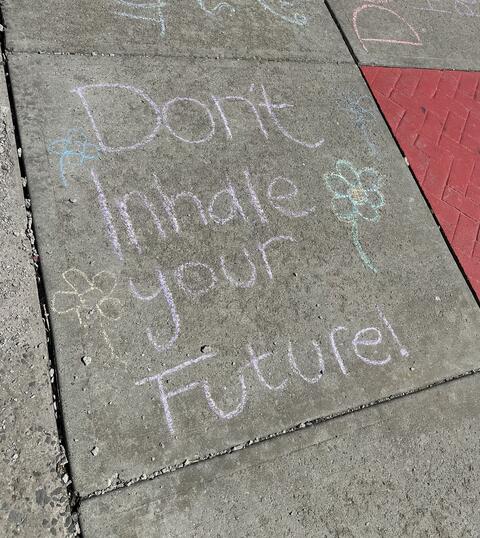 Don't
Inhale
your
Future!